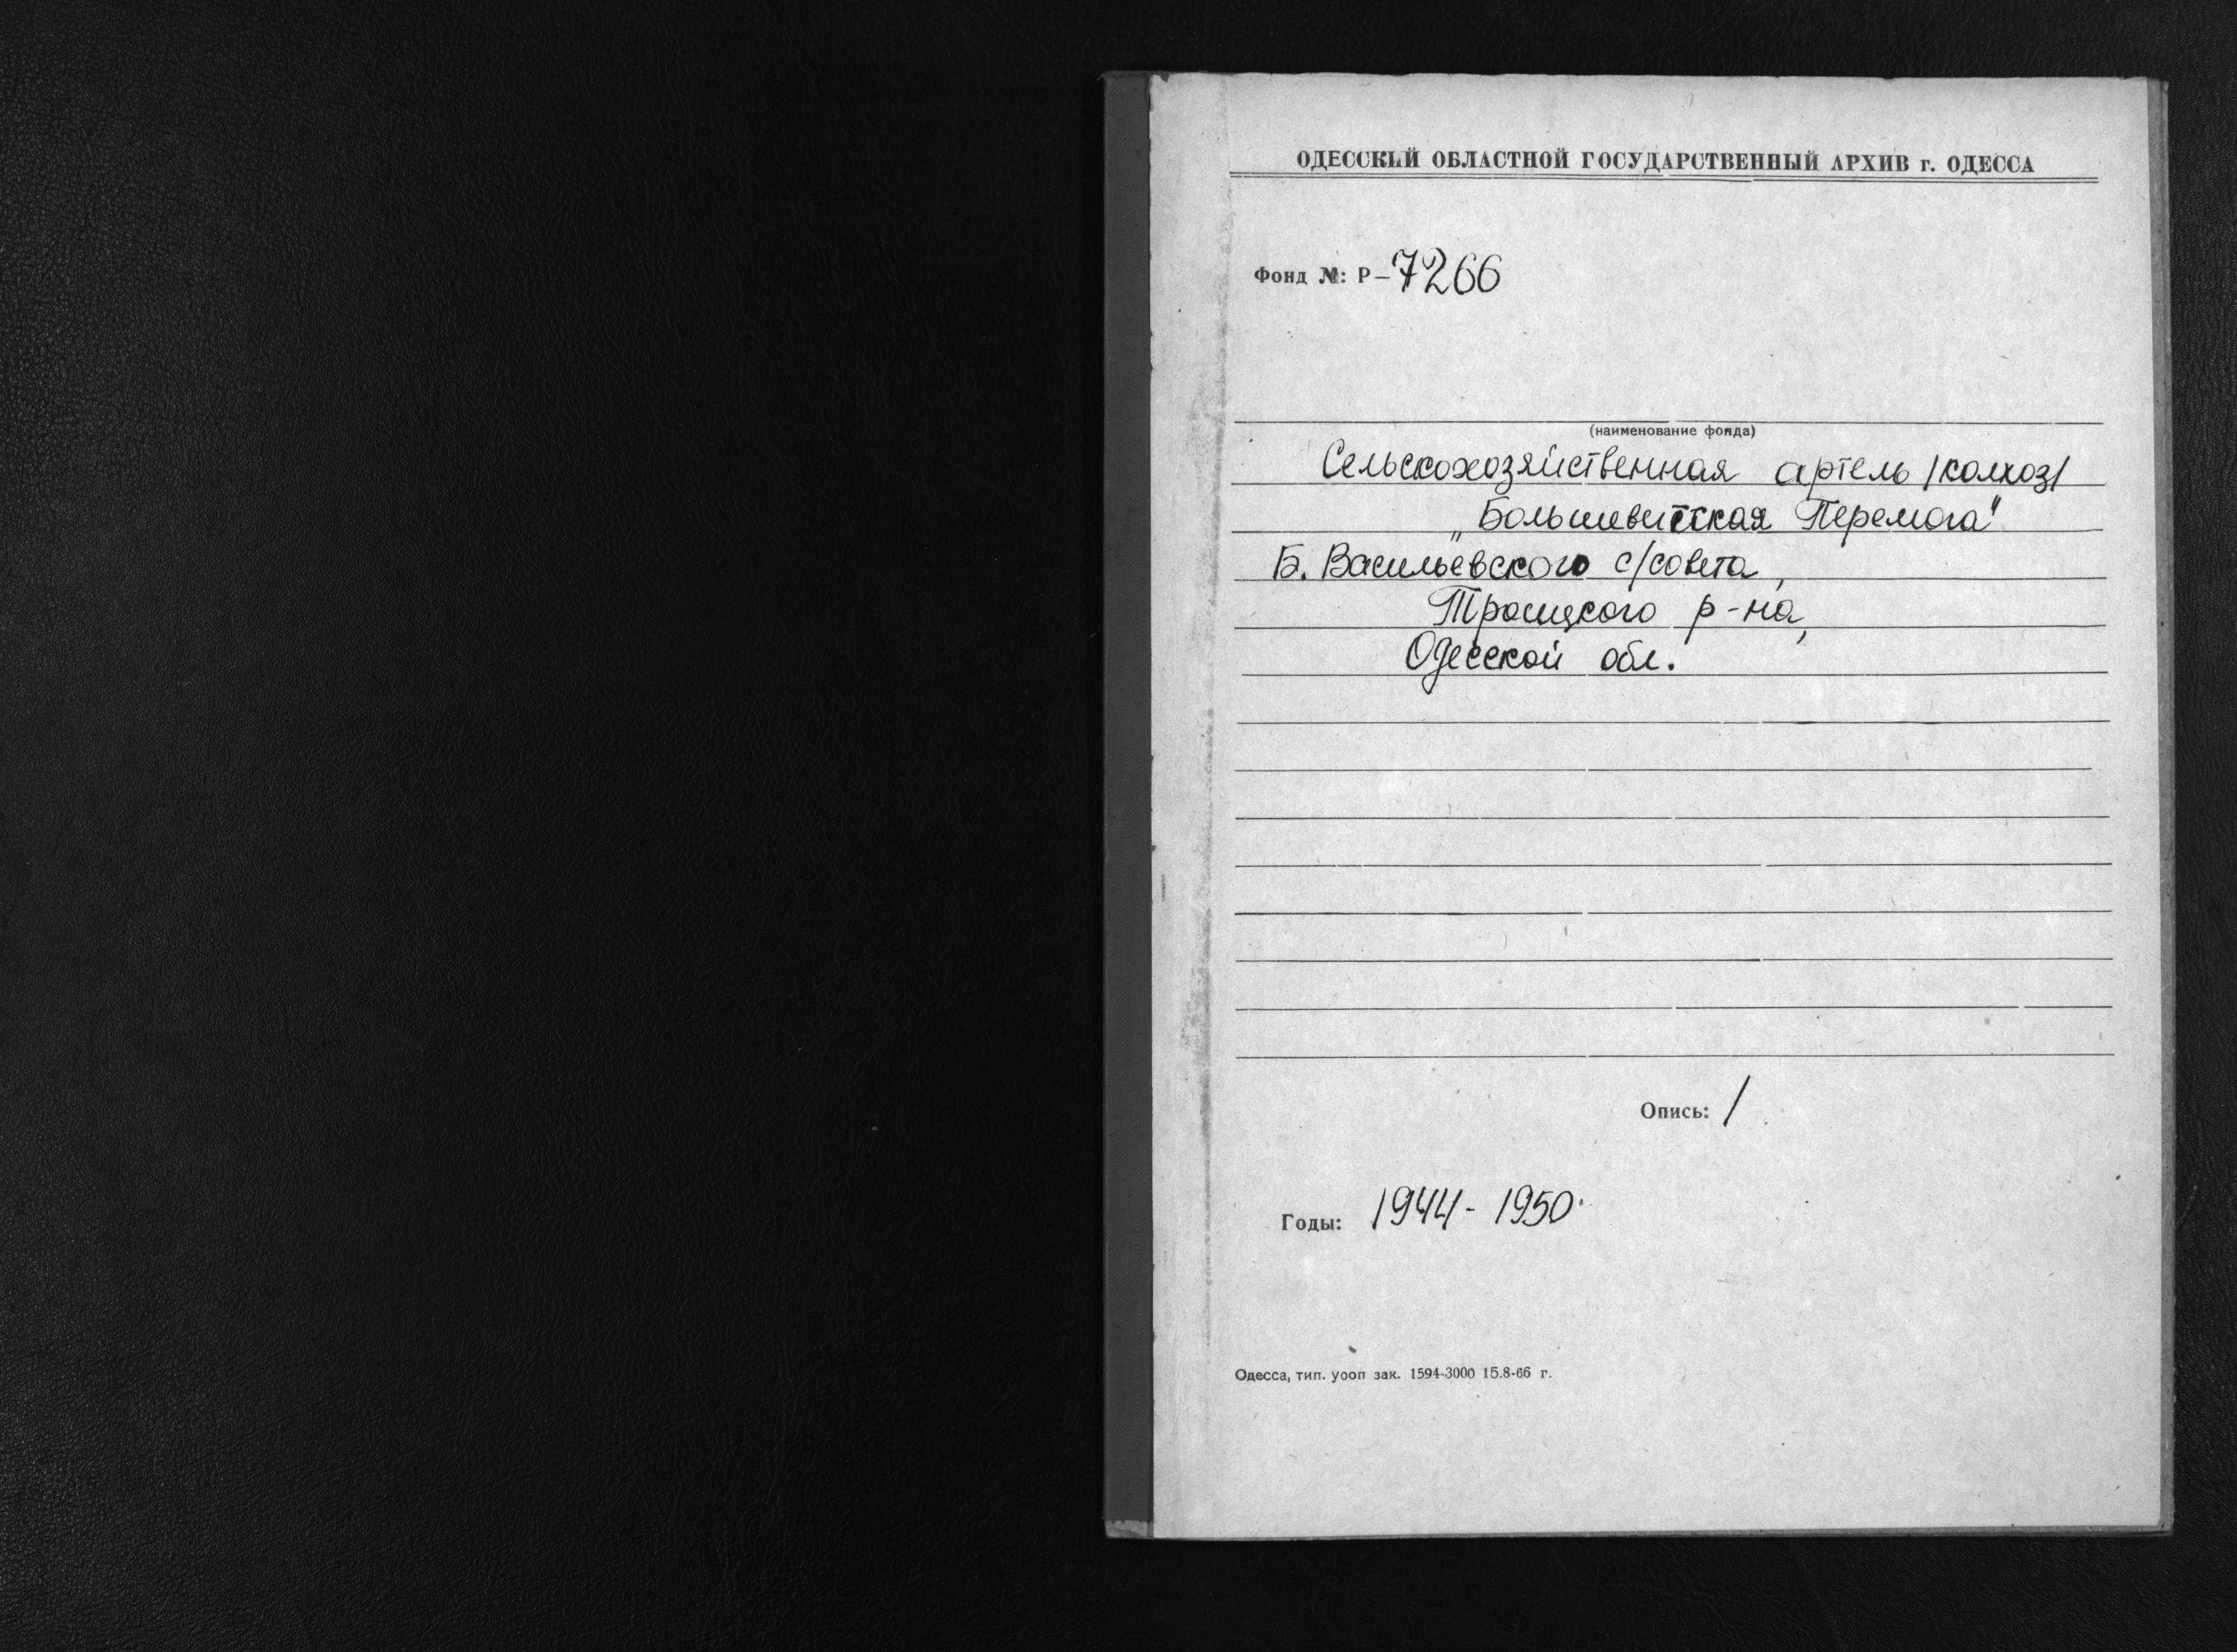 ОДЕССКИЙ ОБЛАСТНОЙ ГОСУДАРСТВЕННЫЙ АРХИВ г. ОДЕССА
Фонд №: Р-7266
(наименование фонда)
Сельскохозяйственная артель /колхоз/
„Большевистская Перемога"
Б. Васильевского с/совета,
Троицкого р-на,
Одесской обл.
Опись: 1
Годы: 1944-1950
Одесса, тип. уооп зак. 1594-3000 15.8-66 г.